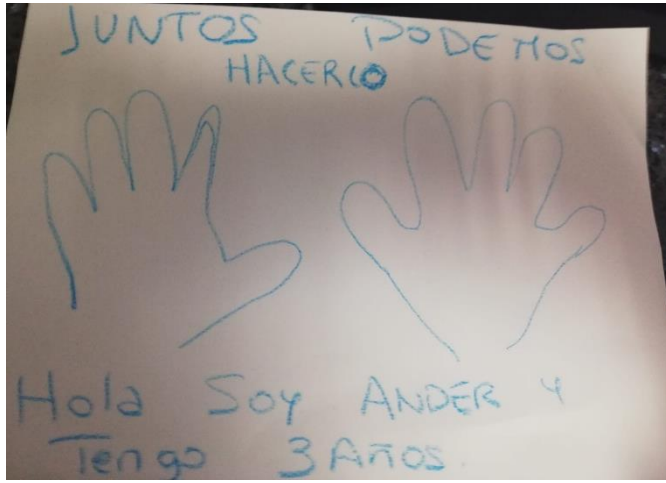 JUNTOS PODEMOS
HACERLO
Hola Soy ANDER Y
Tengo 3 AÑOS.